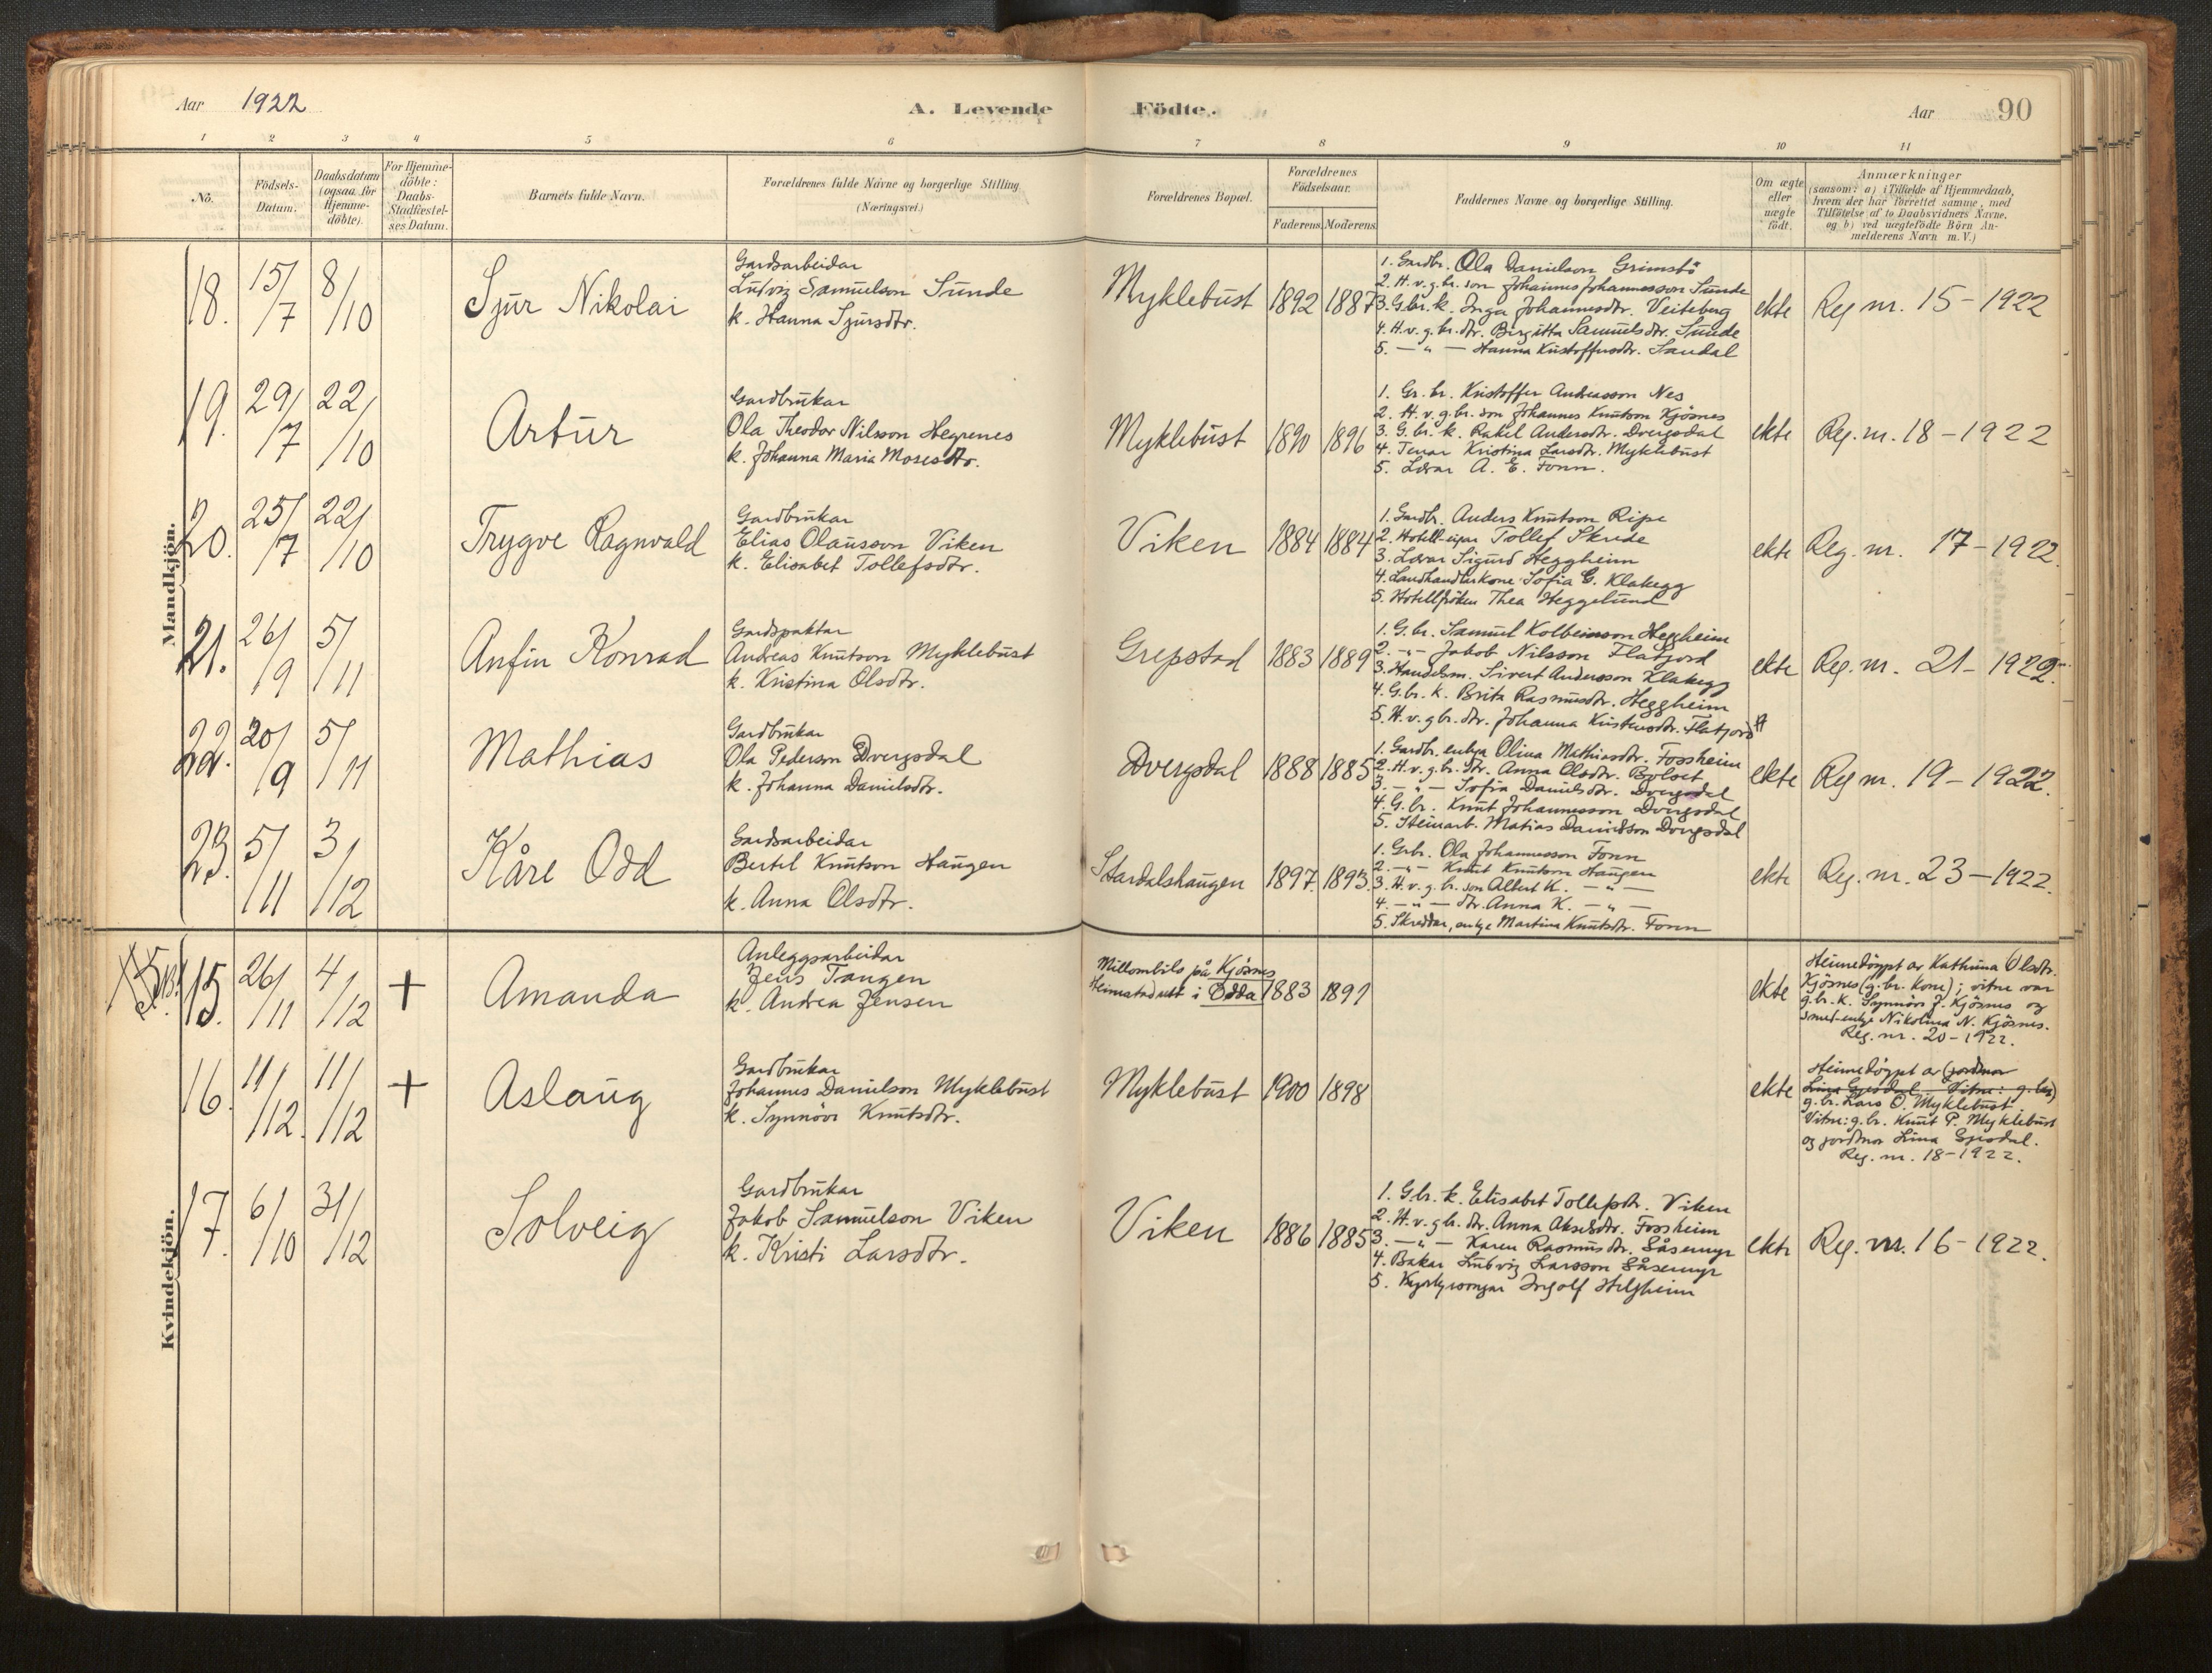 Aar 1922
A. Levende
Födte.
Aar 90
1 2 3 4 5 6 7 8 9 10 11
No.
Födsels-
Datum.
Daabsdatum
(ogsaa for
Hjemme-
döbte).
For Hjemme-
döbte:
Daabs-
Stadfæstel-
ses Datum.
Barnets fulde Navn.
Forældrenes fulde Navne og borgerlige Stilling
(Næringsvei.)
Forældrenes Bopæl.
Forældrenes
Födselsaar.
Faderens. Moderens.
Faddernes Navne og borgerlige Stilling.
Om ægte
eller
uægte
födt.
Anmærkninger
(saasom: a) i Tilfælde af Hjemmedaab,
hvem der har forrettet samme, med
Tilföielse af to Daabsvidners Navne,
og b) ved uægtefödte Börn An-
melderens Navn m. V.)
Mandkjön.
18. 15/7 8/10
Sjur Nikolai
Gardsarbeidar
Ludvig Samuelson Sunde
k. Hanna Sjursdtr.
Myklebust 1892 1887
1. Gardbr. Ola Danielson Grimsbö
2. H. v. g. br. son Johannes Johannesson Sunde
3. G. br. k. Inga Johannesdtr. Veiteberg
4. H. v. g. br. dtr. Birgitta Samuelsdtr. Sunde
5. — " — Hanna Kristoffersdtr. Sandal
ekte Reg nr. 15 - 1922
19. 29/7 22/10
Artur
Gardbrukar
Ola Theodor Nilsson Hegrenes
k. Johanna Maria Mosesdtr.
Myklebust 1890 1896
1. Gr. br. Kristoffer Andreasson Nes
2. H. v. g. br. son Johannes Knutson Kjösnes
3. G. br. k. Rakel Andersdtr. Dvergsdal
4. Tenar Kristina Larsdtr. Myklebust
5. Lærar A. E. Fonn.
ekte Reg. nr. 18 - 1922
20. 25/7 22/10
Trygve Ragnvald
Gardbrukar
Elias Olausson Viken
k. Elisabet Tollefsdtr.
Viken 1884 1884
1. Gardbr. Anders Knutson Ripe
2. Hotell-eigar Tollef Skrede
3. Lærar Sigurd Heggheim
4. Landhandlarkone Sofia G. Klakegg
5. Hotellfröken Thea Heggelund
ekte Reg. nr. 17 - 1922.
21. 26/9 5/11
Anfin Konrad
Gardspaktar
Andreas Knutson Myklebust
k. Kristina Olsdtr.
Grepstad 1883 1889
1. G. br. Samuel Kolbeinson Heggheim
2. - " - Jakob Nilsson Flatjord
3. Handelsm. Sivert Andersson Klakegg
4. G. br. k. Brita Rasmusdtr. Heggheim
5. H. v. g br. dtr. Johanna Kristensdtr. Flatjord
ekte Reg. nr. 21 - 1922.
22. 20/9 5/11
Mathias
Gardbrukar
Ola Pederson Dvergsdal
k. Johanna Danielsdtr.
Dvergsdal 1888 1885
1. Gardbr. enkja Olina Mathiasdtr. Fossheim
2. H. v. g. br. dtr. Anna Olsdtr. Bolset
3. — " — Sofia Danielsdtr. Dvergsdal
4. G. br. Knut Johannesson Dvergsdal
5. Steinarb. Matias Danielson Dvergsdal
ekte Reg nr. 19 - 1922.
23. 5/11 3/12
Kåre Odd
Gardsarbeidar
Bertel Knutson Haugen
k. Anna Olsdtr.
Stardalshaugen 1897. 1893.
1. Grbr. Ola Johannesson Fonn
2. - " - Knut Knutson Haugen
3. H. v. g. br. son Albert K. — " —
4. — " — dtr. Anna K. — " —
5. Skreddar, enkje Martina Knutsdtr. Fonn
ekte Reg. nr. 23 - 1922.
Kvindekjön.
15. 26/11 4/12 +
Amanda
Anleggsarbeidar
Jens Tangen
k. Andrea Jensen
Millombils på Kjösnes
Heimstadrett i Odda 1883 1891
ekte
Heimedöypt av Kathrina Olsdtr.
Kjösnes (g. br. kone); vitne var
g. br. k. Synnöve J. Kjösnes og
smed-enkje Nikolina N. Kjösnes.
Reg. nr. 20 - 1922.
16. 11/12. 11/12 +
Aslaug
Gardbrukar
Johannes Danielson Myklebust
k. Synnöve Knutsdtr.
Myklebust 1900 1898
ekte
Heimedöypt av (jordmor
Lina Gjesdal. Vitne: g. br.)
g. br. Lars O. Myklebust
Vitne: g. br. Knut P. Myklebust
og jordmor Lina Gjesdal.
Reg. nr. 18 - 1922.
17. 6/10 31/12
Solveig
Gardbrukar
Jakob Samuelson Viken
k. Kristi Larsdtr.
Viken 1886 1885
1. G. br. k. Elisabet Tollefsdtr. Viken
2. H. v. g br. dtr. Anna Akselsdtr. Fossheim
3. — " — Karen Rasmusdtr. Såsemyr
4. Bakar Ludvig Larsson Såsemyr
5. Kyrkjesongar Ingolf Helgheim
ekte Reg. nr. 16 - 1922.